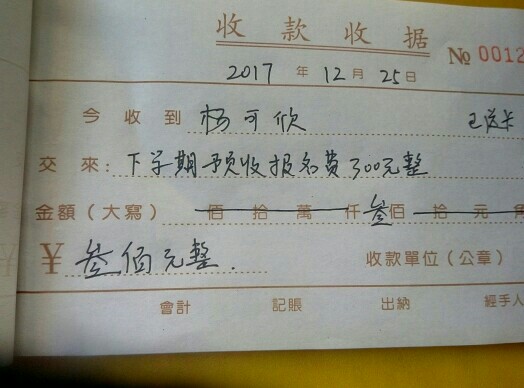 收款收据
№ 0012
2017 年 12 月 25 日
今收到 杨可欣
交来: 下学期预收报名费300元整
金額(大寫) 佰拾萬仟叁佰拾元角
¥ 叁佰元整.
收款單位(公章)
會計 記賬 出納 經手人